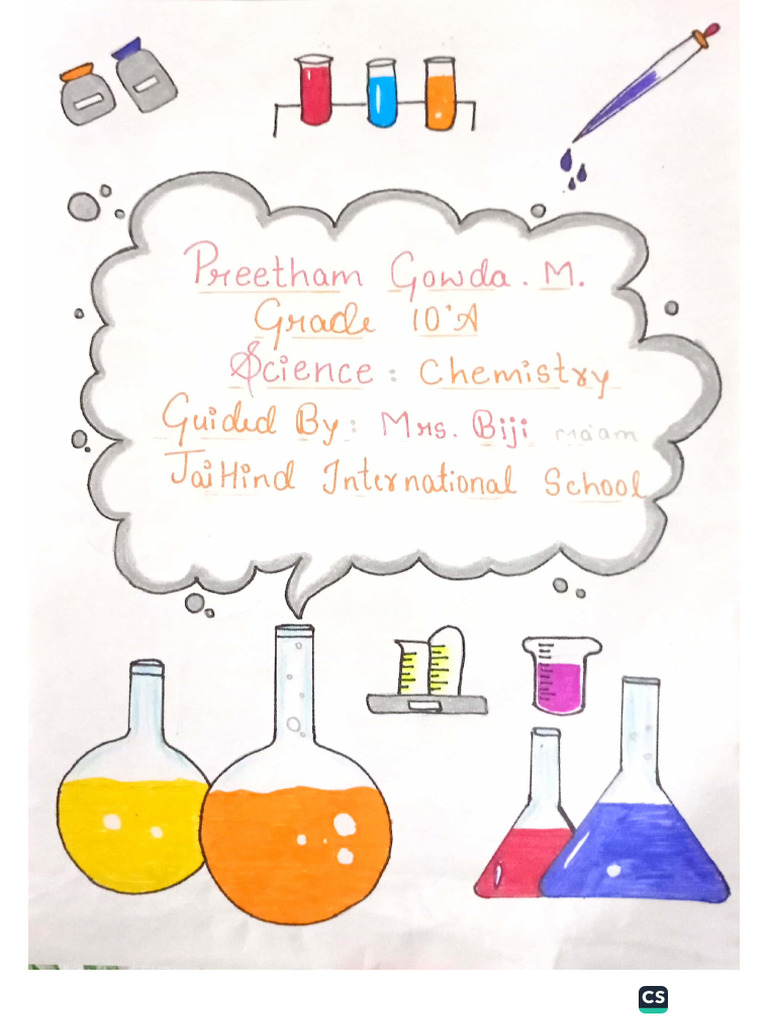 Preetham Gowda. M.
Grade 10'A
Science: Chemistry
Guided By: Mrs. Biji Ma'am
JaiHind International School
CS